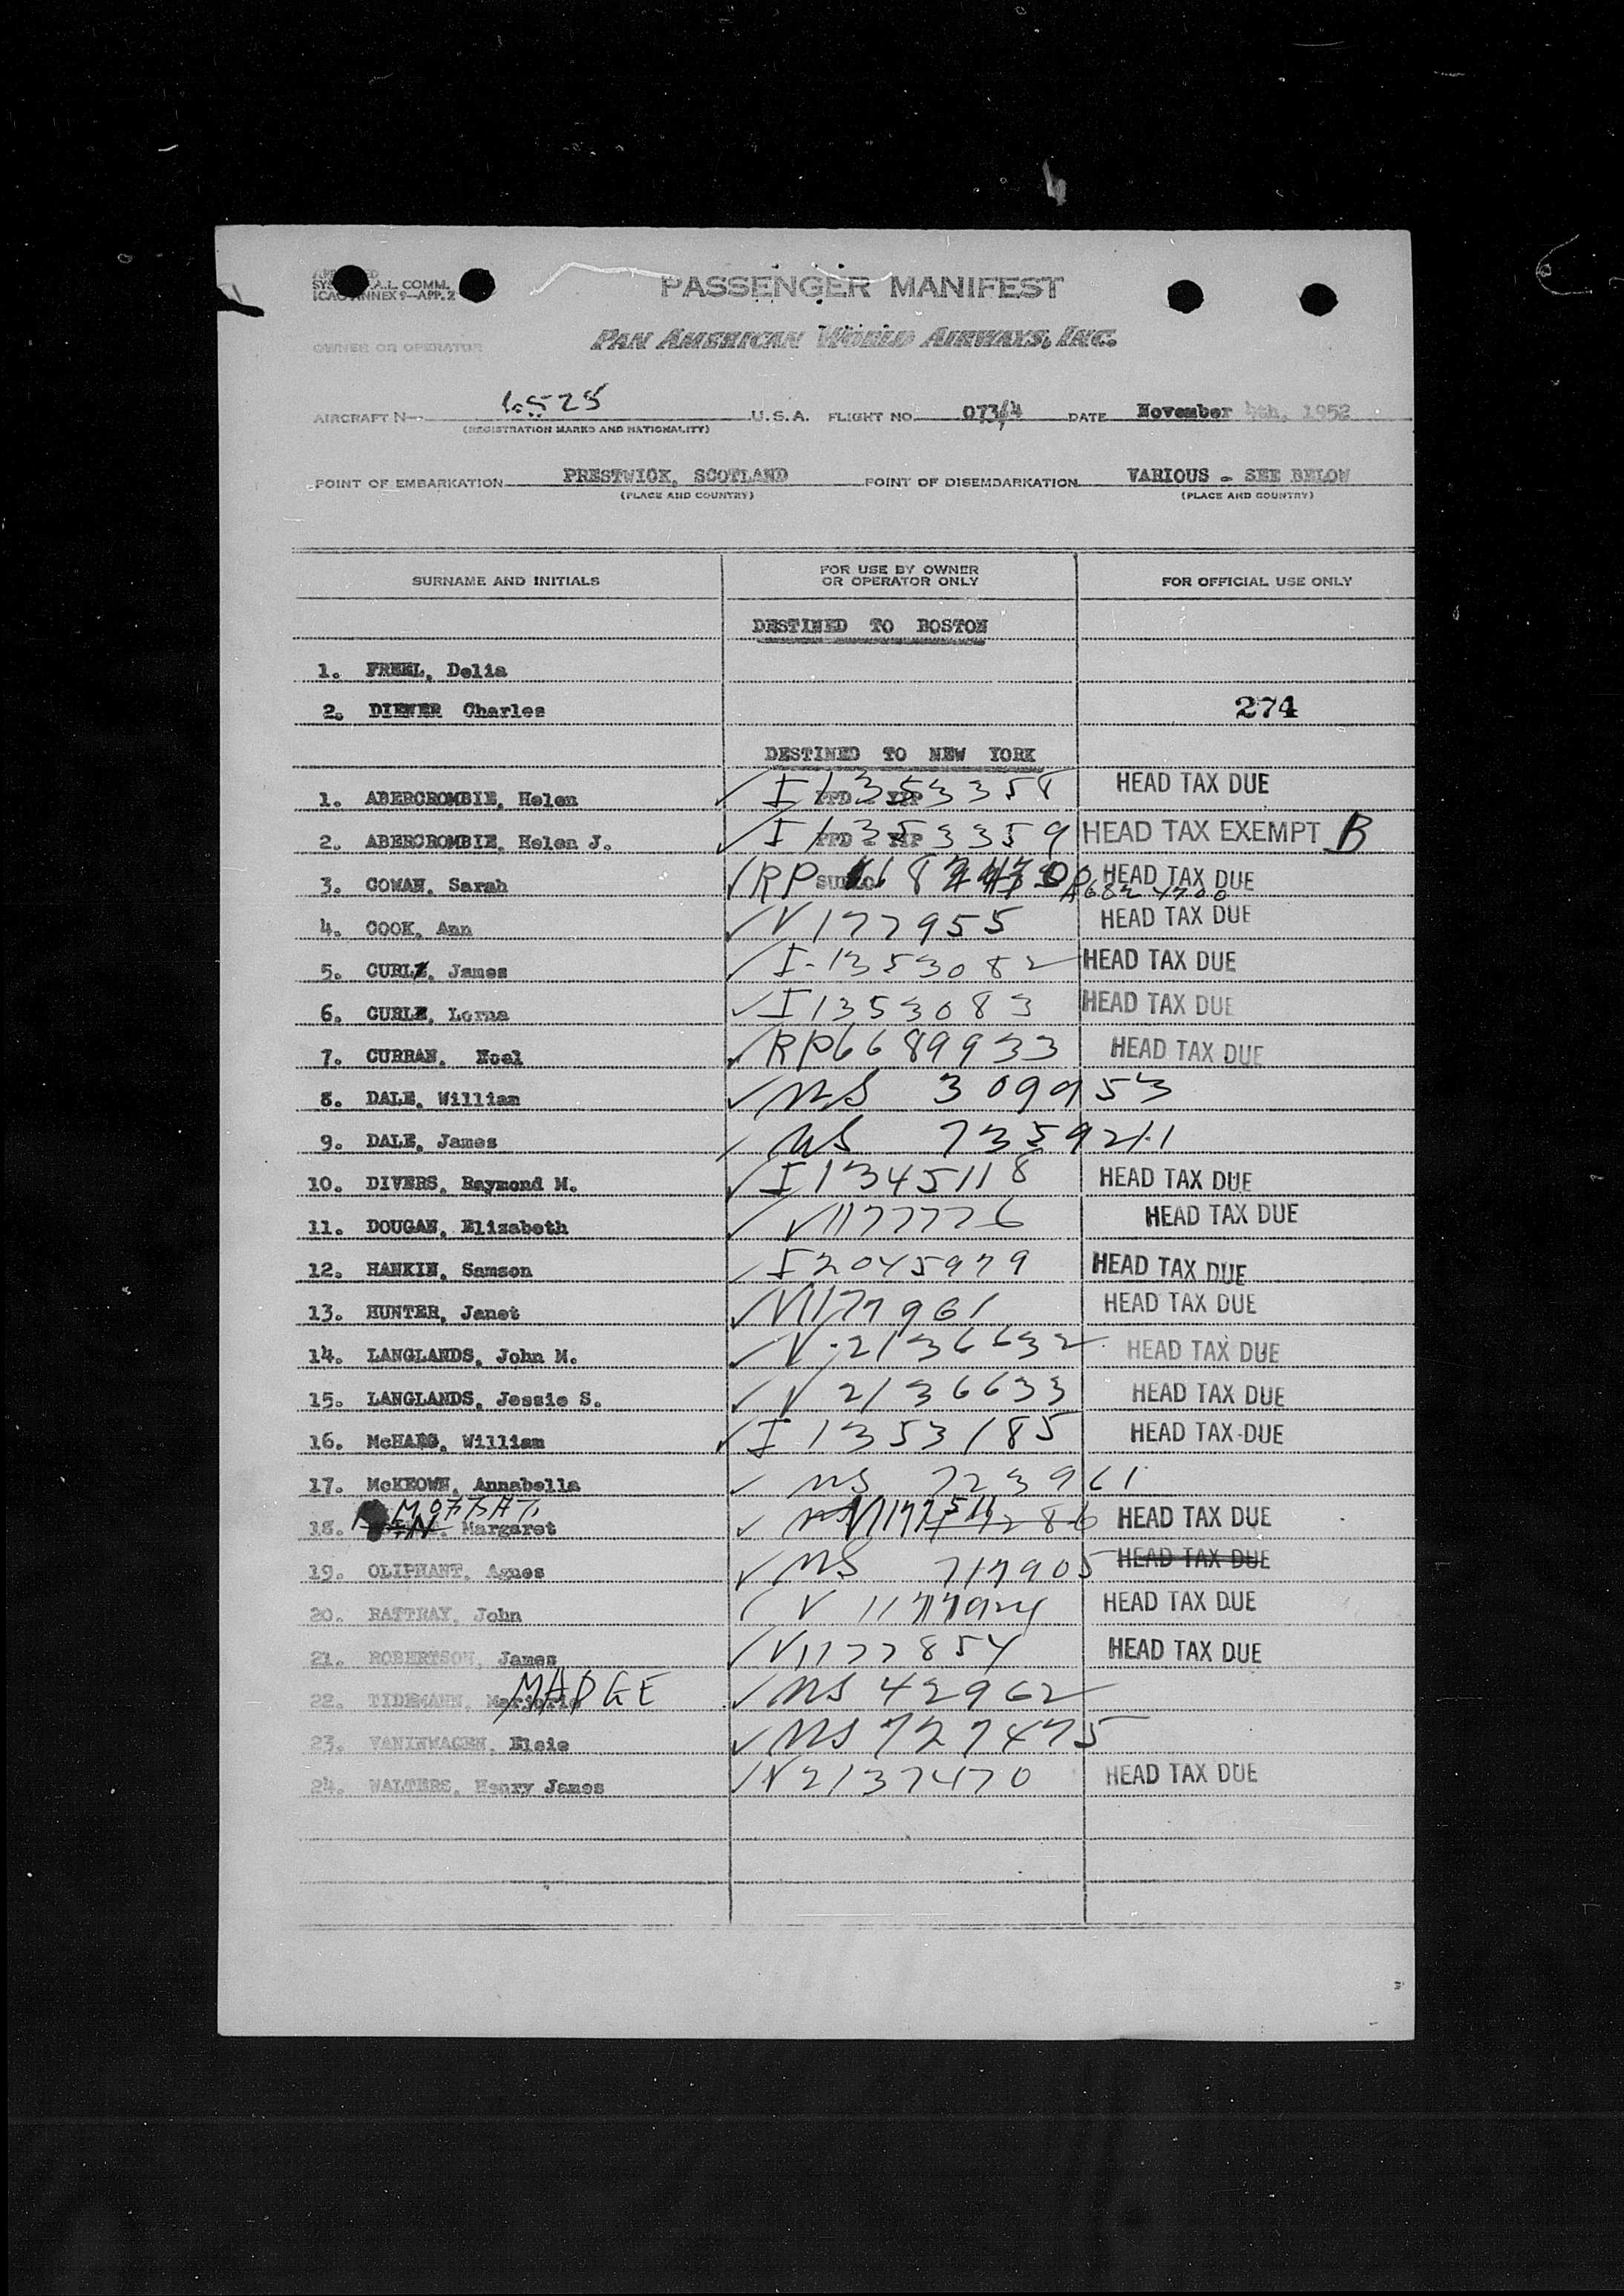 SY A.L. COMM.
ICAO ANNEX 9-APP. 2
PASSENGER MANIFEST
OWNER OR OPERATOR
PAN AMERICAN WORLD AIRWAYS, INC.
AIRCRAFT N- U.S.A. FLIGHT NO. DATE November 4th, 1952
(REGISTRATION MARKS AND NATIONALITY)
POINT OF EMBARKATION PRESTWICK, SCOTLAND POINT OF DISEMBARKATION VARIOUS - SEE BELOW
(PLACE AND COUNTRY) (PLACE AND COUNTRY)
SURNAME AND INITIALS FOR USE BY OWNER OR OPERATOR ONLY FOR OFFICIAL USE ONLY
DESTINED TO BOSTON
1. FREEL, Delia
2. DIEWER Charles 274
DESTINED TO NEW YORK
1. ABERCROMBIE, Helen I 1353358 HEAD TAX DUE
2. ABERCROMBIE, Helen J. I 1353359 HEAD TAX EXEMPT B
3. COWAN, Sarah RP HEAD TAX DUE
4. COOK, Ann V 177955 HEAD TAX DUE
5. CURL, James I-1353082 HEAD TAX DUE
6. CURLE, Lorna I 1353083 HEAD TAX DUE
7. CURRAN, Noel RP6689933 HEAD TAX DUE
8. DALE, William NS 309953
9. DALE, James NS
10. DIVERS, Raymond M. I 1345118 HEAD TAX DUE
11. DOUGAN, Elizabeth V1177776 HEAD TAX DUE
12. HANKIN, Samson I2045979 HEAD TAX DUE
13. HUNTER, Janet V1177961 HEAD TAX DUE
14. LANGLANDS, John M. V-2136632 HEAD TAX DUE
15. LANGLANDS, Jessie S. V 2136633 HEAD TAX DUE
16. McHARG, William I 1353185 HEAD TAX DUE
17. McKEOWN, Annabella NS 723961
MOFFAT
18. Margaret HEAD TAX DUE
19. OLIPHANT, Agnes NS 717905 HEAD TAX DUE
20. RATTRAY, John V 1177924 HEAD TAX DUE
21. ROBERTSON, James V1177854 HEAD TAX DUE
22. TIDEMANN, Marjorie MADGE NS 42962
23. VANINWAGEN, Elsie NS 727475
24. WALTERS, Henry James V2137470 HEAD TAX DUE